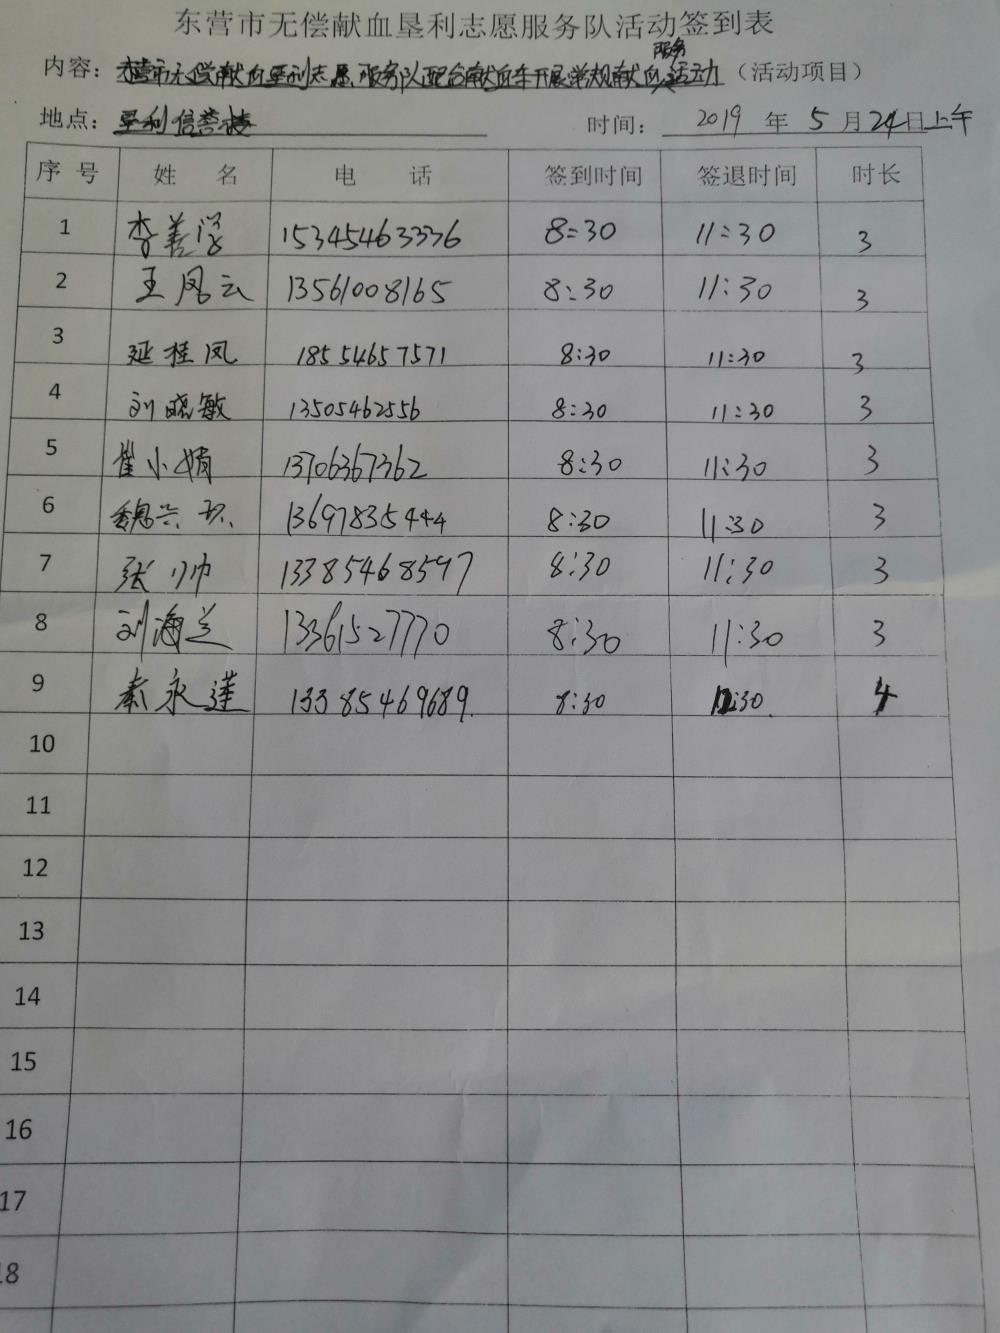 东营市无偿献血垦利志愿服务队活动签到表
内容：东营市无偿献血垦利志愿服务队配合献血车开展常规献血服务活动（活动项目）
地点：垦利信誉楼 时间：2019 年 5 月 24 日上午
序号 姓 名 电 话 签到时间 签退时间 时长
1 李善学 15345463336 8:30 11:30 3
2 王凤云 13561008165 8:30 11:30 3
3 延桂凤 18554657571 8:30 11:30 3
4 刘晓敏 13505462556 8:30 11:30 3
5 崔小娟 13706367362 8:30 11:30 3
6 魏兴 13697835444 8:30 11:30 3
7 张帅 13385468597 8:30 11:30 3
8 刘海兰 13361527770 8:30 11:30 3
9 秦永莲 13385469689 8:30 12:30 4
10
11
12
13
14
15
16
17
18